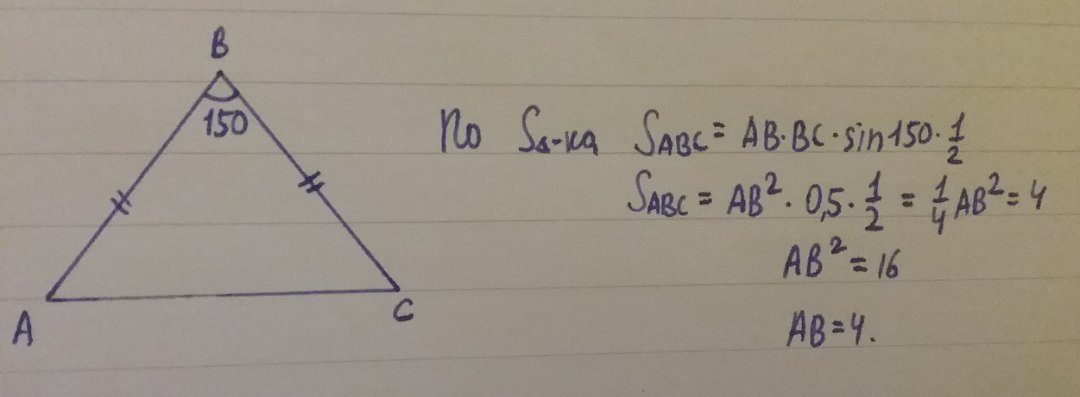 B
150
A
C
По S△-ка SABC = AB·BC·sin150·1/2
SABC = AB²·0,5·1/2 = 1/4AB² = 4
AB² = 16
AB = 4.